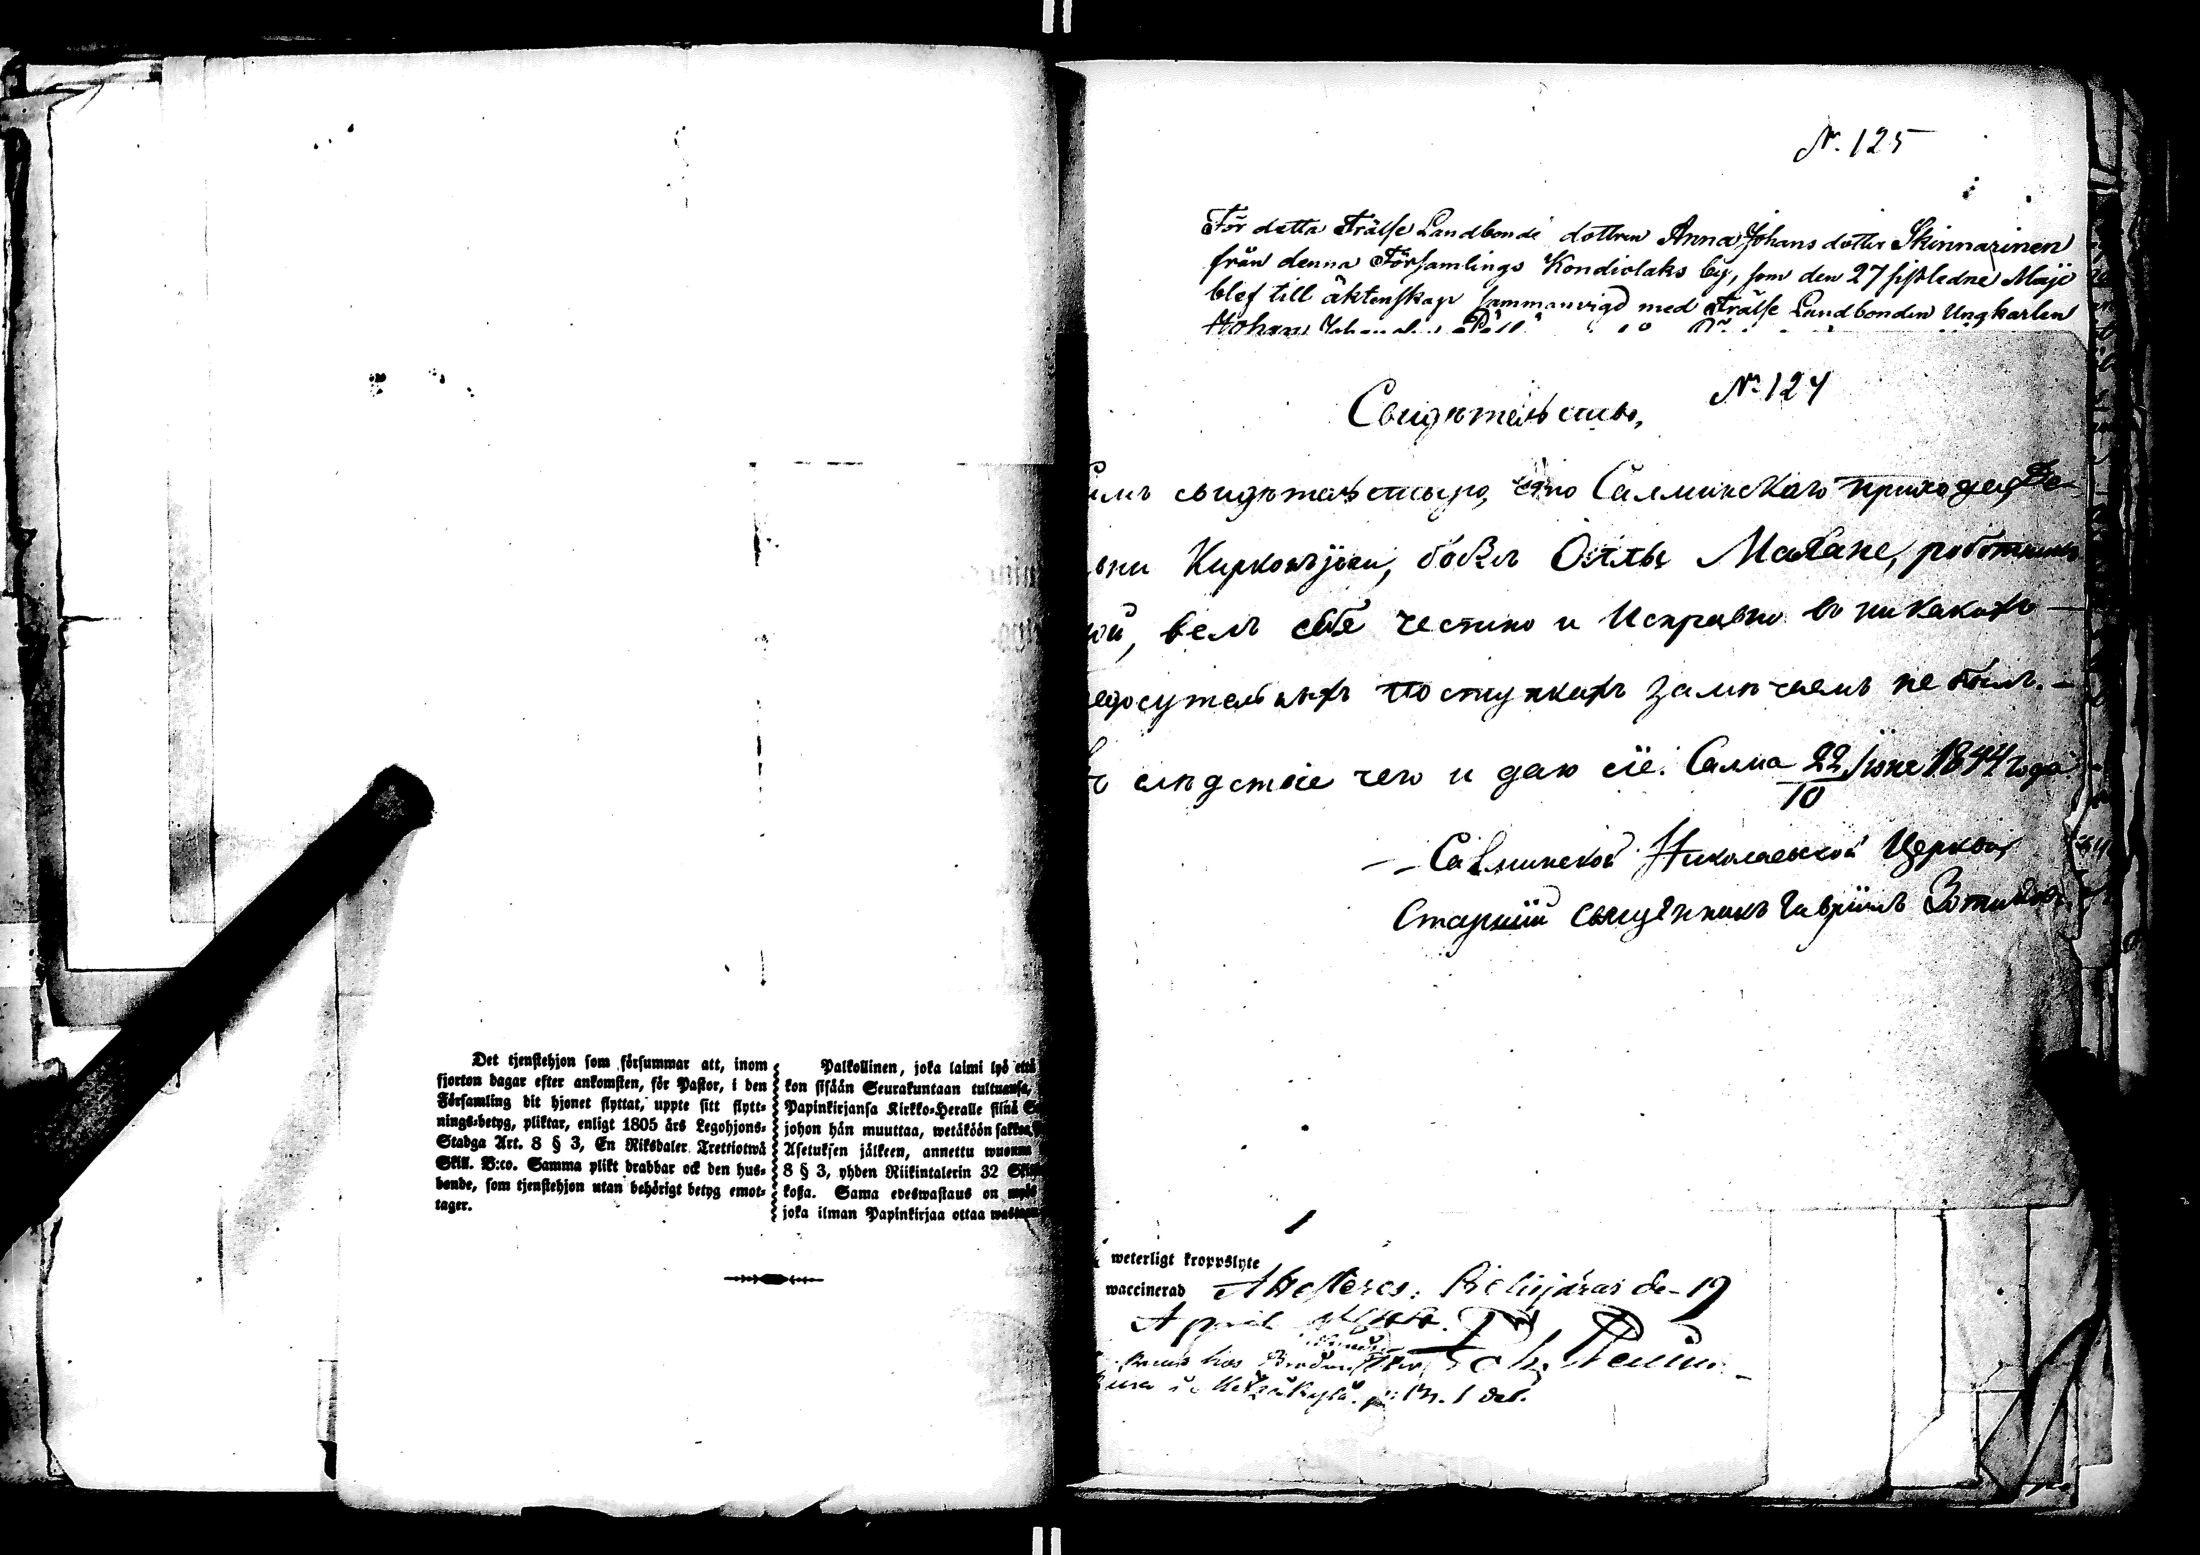 Det tjenstehjon som försummar att, inom
fjorton dagar efter ankomsten, för Pastor, i den
Församling dit hjonet flyttat, uppte sitt flytt-
nings-betyg, pliktar, enligt 1805 års Legohjons-
Stadga Art. 8 § 3, En Riksdaler Trettiotwå
Skill. B:co. Samma plikt drabbar ock den hus-
bonde, som tjenstehjon utan behörigt betyg emot-
tager.
Palkollinen, joka laimi lyö että
kon sisään Seurakuntaan tultuansa,
Papinkirjansa Kirkko-Heralle siinä
johon hän muuttaa, wetäköön sakkoa
Asetuksen jälkeen, annettu wuonna
8 § 3, yhden Riikintalerin 32
koßa. Sama edeswastaus on myös
joka ilman Papinkirjaa ottaa
N. 125
För detta Frälse Landbonde dottren Anna Johans dotter Skinnarinen
från denna Församlings Kondiolaks by, som den 27 sistledne Maji
blef till äktenskap sammanvigd med Frälse Landbonden Ungkarlen
Johan
N. 124
Свидѣтельство,
симъ свидѣтельствую, что Салминскаго прихода, де-
вни Киркоіоки, бобыль
ой, велъ себя честно и Исправно въ никакихъ —
едосудительныхъ поступкахъ замѣчаемъ не былъ. —
слѣдствіе чего и даю сіе. Салма 22/10 Іюне 1844 года
— Салминской Николаевской Церкви
Старшій священникъ Гавріилъ Зотиковъ
weterligt kroppslyte
waccinerad Attesteras: Pielisjärvi de- 19
April